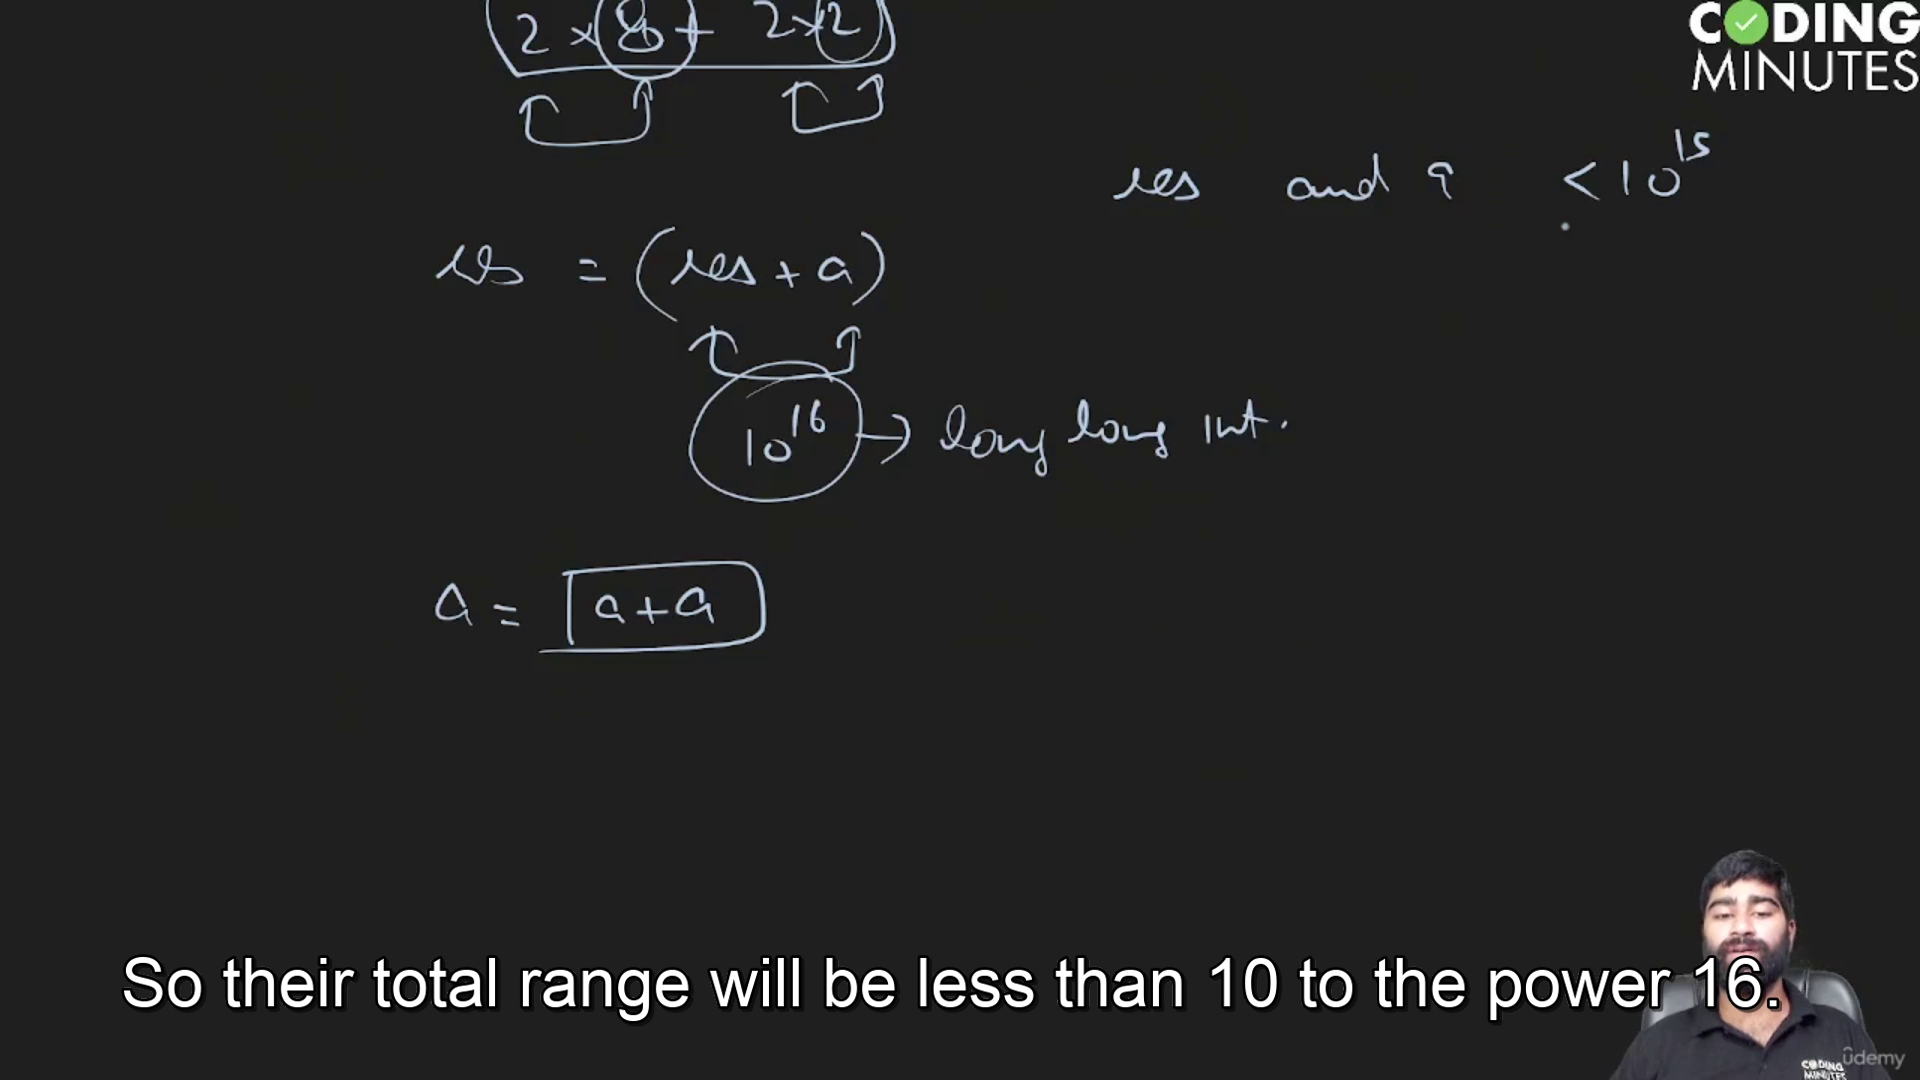 CODING
MINUTES
2 × 8 + 2 × 2
res and a < 10^15
res = (res + a)
10^16 → long long int.
a = a + a
So their total range will be less than 10 to the power 16.
CODING
MINUTES
ûdemy